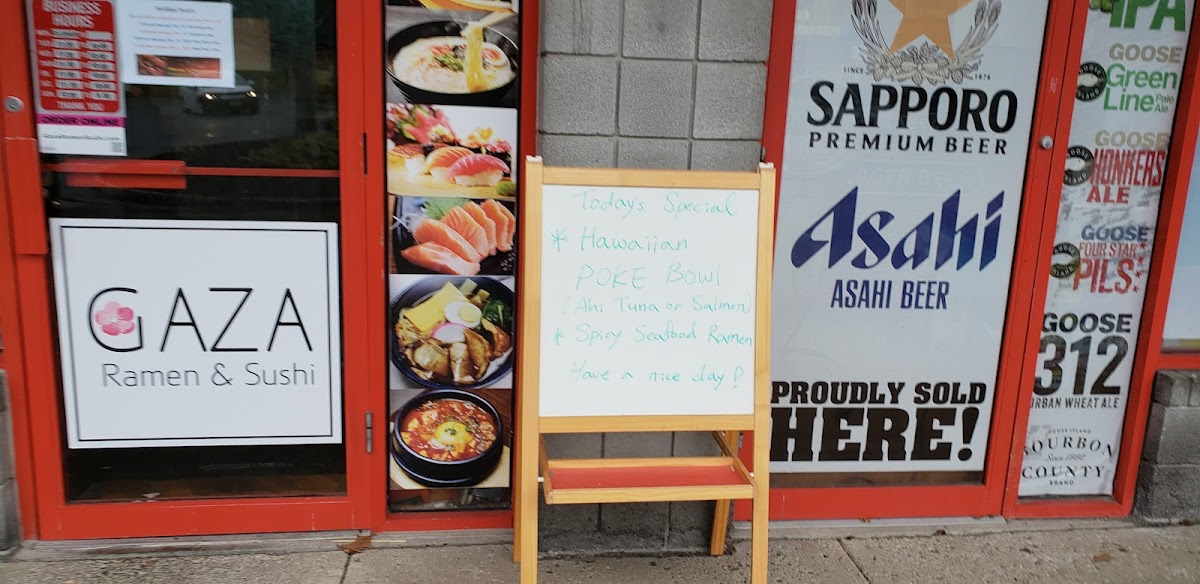 BUSINESS
HOURS
THANK YOU
ORDER ONLINE
GAZA
Ramen & Sushi
Today's Special
* Hawaiian
POKE Bowl
(Ahi Tuna or Salmon)
* Spicy Seafood Ramen
Have a nice day!
SINCE 1876
SAPPORO
PREMIUM BEER
Asahi
ASAHI BEER
PROUDLY SOLD
HERE!
IPA
GOOSE
Green
Line Pale
Ale
GOOSE
HONKERS
ALE
GOOSE
FOUR STAR
PILS
GOOSE
312
URBAN WHEAT ALE
GOOSE ISLAND
BOURBON
Since 1992
COUNTY
BRAND